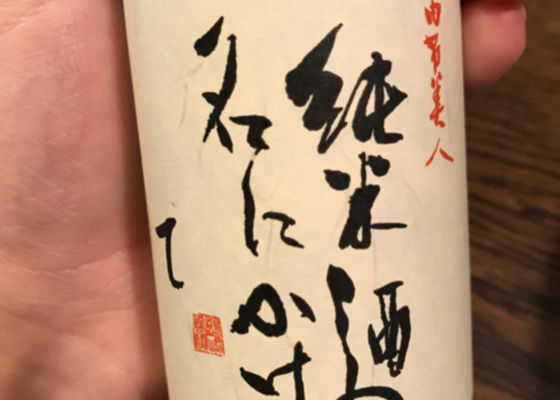 美人
純米酒
名にかけ
て